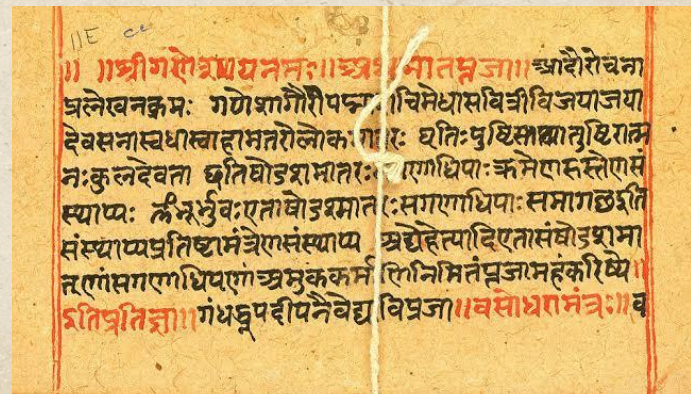 ॥E
॥ ॥श्रीगणेशायनमः॥अथमातपूजा॥आदौरोचना
प्रलेखनक्रमः गणेशागौरीपद्माशचिमेधासवित्रीविजयाजया
देवसेनास्वधास्वाहामातरोलोकमातरः धृतिःपुष्टिस्तथातुष्टिरात्म
नःकुलदेवता धृतिषोडशमातरः गणाधिपाःक्रमेण सं
स्थाप्यः भूर्भुवःएताषोडशमातरःसगणाधिपाःसमागछ
संस्थाप्यप्रतिष्टामंत्रेणसंस्थाप्य अद्येहेत्यादिएतासंषोडशमा
तृणांसगणाधिपाणांअमुककर्मणिनिमितंपूजामहंकरिष्ये॥
इतिप्रतिज्ञा॥गंधधूपदीपनैवेद्य पूजा॥वसोधरामंत्रः॥व